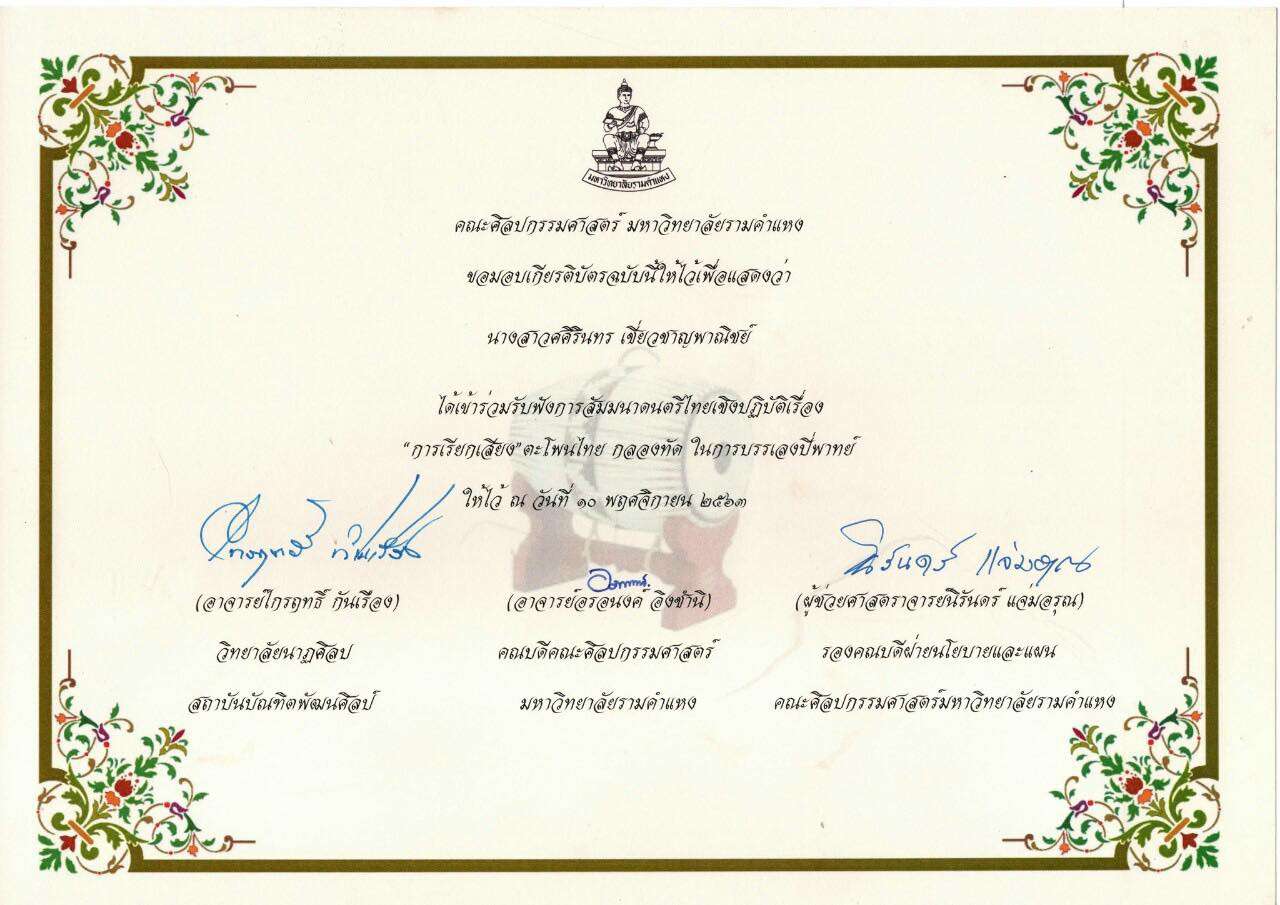 มหาวิทยาลัยรามคำแหง
คณะศิลปกรรมศาสตร์ มหาวิทยาลัยรามคำแหง
ขอมอบเกียรติบัตรฉบับนี้ให้ไว้เพื่อแสดงว่า
นางสาวศศิรินทร เชี่ยวชาญพาณิชย์
ได้เข้าร่วมรับฟังการสัมมนาดนตรีไทยเชิงปฏิบัติเรื่อง
“การเรียกเสียง”ตะโพนไทย กลองทัด ในการบรรเลงปี่พาทย์
ให้ไว้ ณ วันที่ ๑๐ พฤศจิกายน ๒๕๖๓
(อาจารย์ไกรฤทธิ์ กันเรือง) (อาจารย์อรอนงค์ อิงชำนิ) (ผู้ช่วยศาสตราจารย์นิรันดร์ แจ่มอรุณ)
วิทยาลัยนาฏศิลป คณบดีคณะศิลปกรรมศาสตร์ รองคณบดีฝ่ายนโยบายและแผน
สถาบันบัณฑิตพัฒนศิลป์ มหาวิทยาลัยรามคำแหง คณะศิลปกรรมศาสตร์มหาวิทยาลัยรามคำแหง